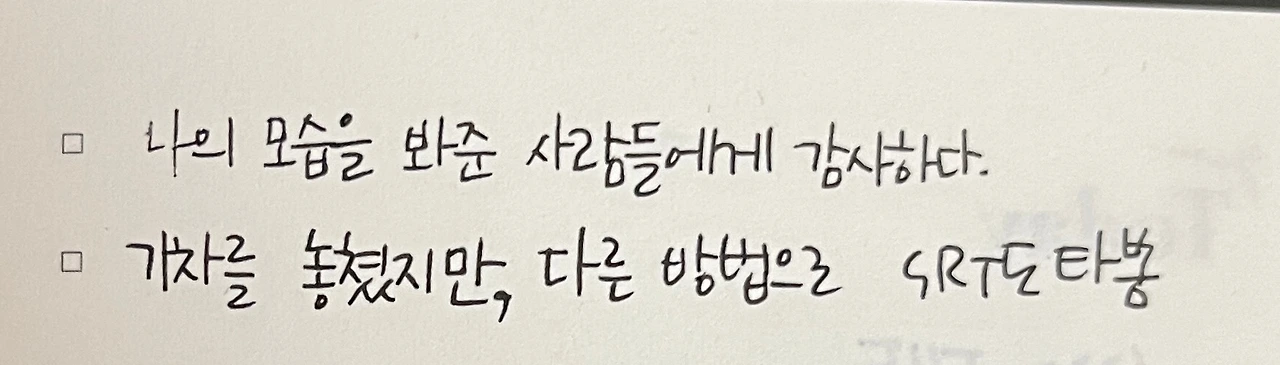 □ 나의 모습을 봐준 사람들에게 감사하다.
□ 기차를 놓쳤지만, 다른 방법으로 SRT도 타봄